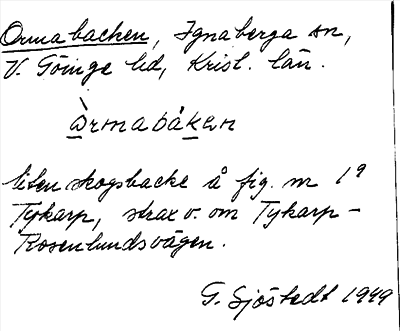 Ormabacken, Ignaberga sn,
V. Göinge hd, Krist. län.
òrmabåkən
liten skogsbacke å fig. nr 1⁹
Tykarp, strax v. om Tykarp-
Rosenlundsvägen.
G. Sjöstedt 1949